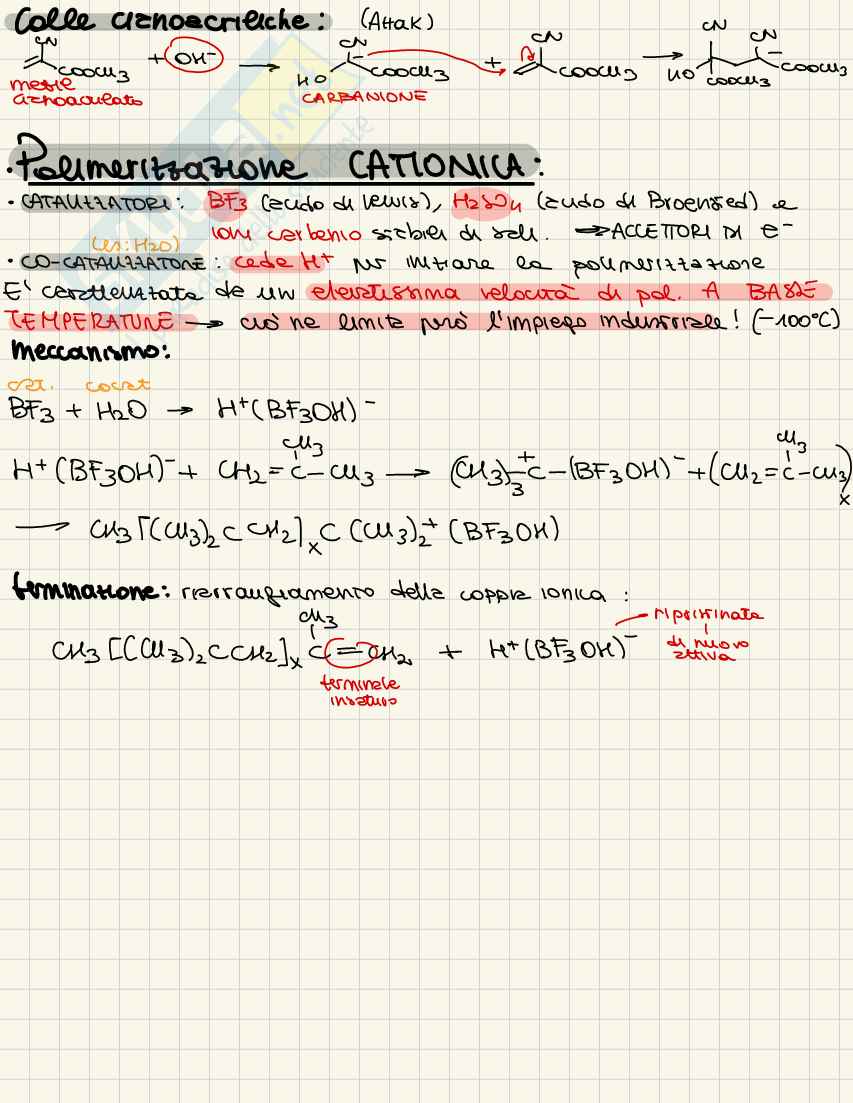 Colle cianoacriliche: (Attak)
CN CN CN CN CN
+ OH⁻ → HO COOCH3 + COOCH3 → HO COOCH3 COOCH3
COOCH3
metil cianoacrilato CARBANIONE
· Polimerizzazione CATIONICA:
· CATALIZZATORI: BF3 (acido di Lewis), H2SO4 (acido di Broensted) e
ioni carbenio stabili di sali. → ACCETTORI DI e⁻
(es: H2O)
· CO-CATALIZZATORE: cede H⁺ per iniziare la polimerizzazione
E' caratterizzata da un elevatissima velocità di pol. A BASSE
TEMPERATURE → ciò ne limita però l'impiego industriale! (-100°C)
Meccanismo:
cat. cocat
BF3 + H2O → H⁺(BF3OH)⁻
H⁺(BF3OH)⁻ + CH2=C(CH3)-CH3 → (CH3)3-C⁺-(BF3OH)⁻ + (CH2=C(CH3)-CH3)x
→ CH3[(CH3)2CCH2]xC(CH3)2⁺(BF3OH)
terminazione: riarrangiamento della coppia ionica:
CH3[(CH3)2CCH2]xC(CH3)=CH2 + H⁺(BF3OH)⁻ ripristinata
di nuovo
attiva
terminale
insaturo